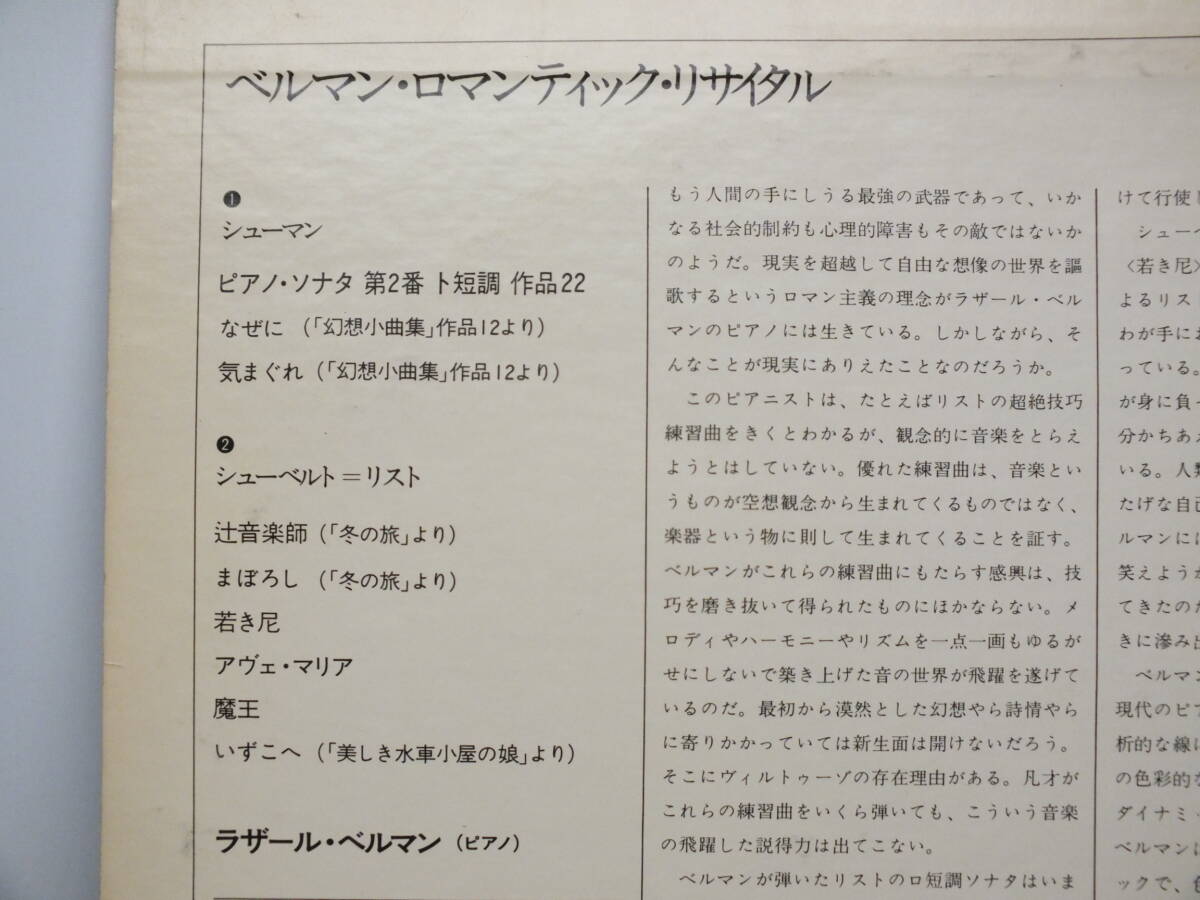 ベルマン・ロマンティック・リサイタル
❶
シューマン
ピアノ・ソナタ 第2番 ト短調 作品22
なぜに (「幻想小曲集」作品12より)
気まぐれ (「幻想小曲集」作品12より)
❷
シューベルト＝リスト
辻音楽師 (「冬の旅」より)
まぼろし (「冬の旅」より)
若き尼
アヴェ・マリア
魔王
いずこへ (「美しき水車小屋の娘」より)
ラザール・ベルマン (ピアノ)
もう人間の手にしうる最強の武器であって、いか
なる社会的制約も心理的障害もその敵ではないか
のようだ。現実を超越して自由な想像の世界を謳
歌するというロマン主義の理念がラザール・ベル
マンのピアノには生きている。しかしながら、そ
んなことが現実にありえたことなのだろうか。
このピアニストは、たとえばリストの超絶技巧
練習曲をきくとわかるが、観念的に音楽をとらえ
ようとはしていない。優れた練習曲は、音楽とい
うものが空想観念から生まれてくるものではなく、
楽器という物に則して生まれてくることを証す。
ベルマンがこれらの練習曲にもたらす感興は、技
巧を磨き抜いて得られたものにほかならない。メ
ロディやハーモニーやリズムを一点一画もゆるが
せにしないで築き上げた音の世界が飛躍を遂げて
いるのだ。最初から漠然とした幻想やら詩情やら
に寄りかかっていては新生面は開けないだろう。
そこにヴィルトゥーゾの存在理由がある。凡才が
これらの練習曲をいくら弾いても、こういう音楽
の飛躍した説得力は出てこない。
ベルマンが弾いたリストのロ短調ソナタはいま
けて行使
シューベ
〈若き尼〉
よるリス
わが手にお
っている。
が身に負
分かちあえ
いる。人類
たげな自己
ルマンには
笑えようか
てきたのだ
きに滲み出
ベルマン
現代のピア
析的な線に
の色彩的な
ダイナミ
ベルマンに
ックで、色